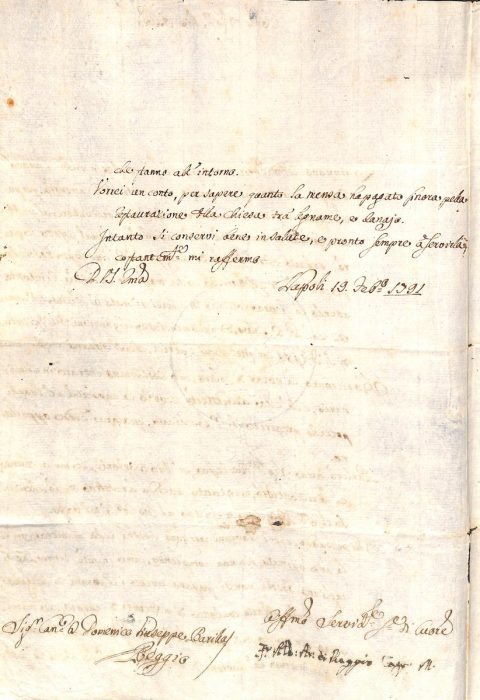 che stanno all'intorno.
Vorrei un conto, per sapere quanto la mensa ha pagato sinora pella
restaurazione della Chiesa trà legname, e
Intanto si conservi bene in salute, e pronto sempre à servirla
costantem.te mi raffermo
D. V. S. Ill.ma
Napoli 19. Feb.o 1791
Sig.r Can.co D. Domenico Giuseppe Barilla
Reggio
Aff.mo Servid.re di Cuore
di Reggio